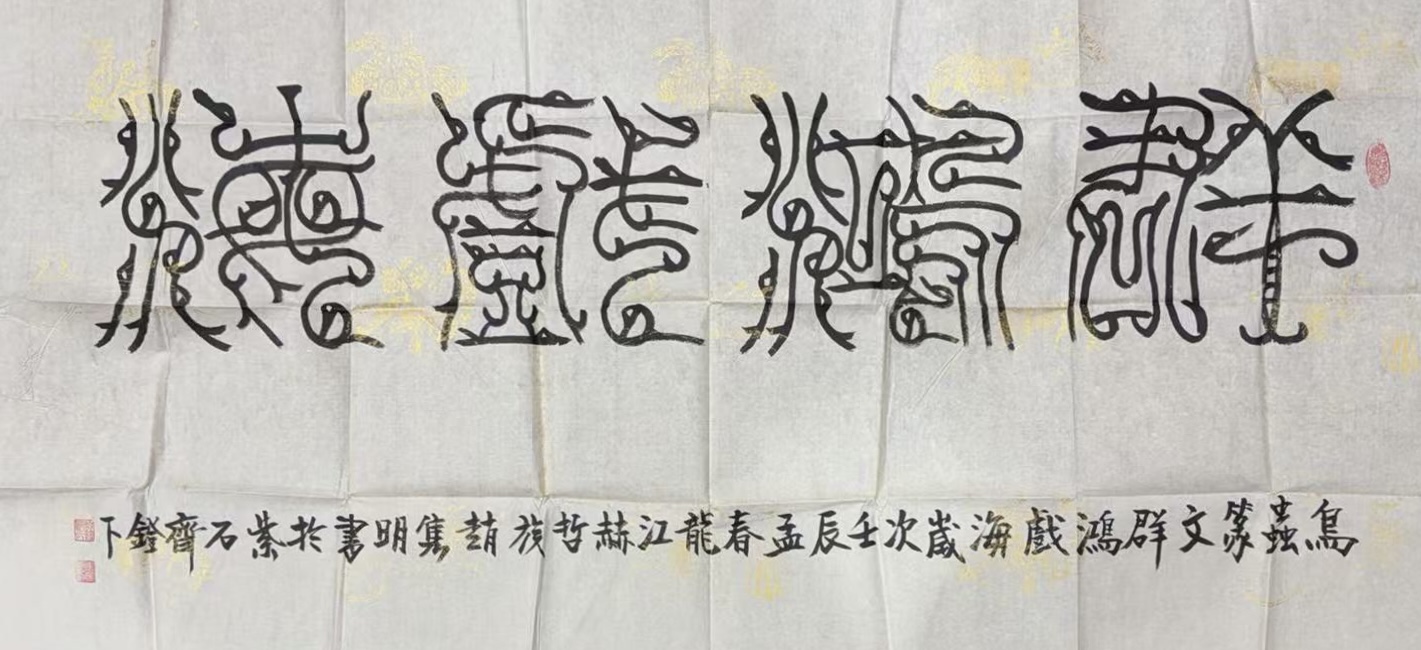 群鴻戲海
鳥蟲篆文群鴻戲海歲次壬辰孟春龍江赫哲族趙雋明書於紫石齊鐙下